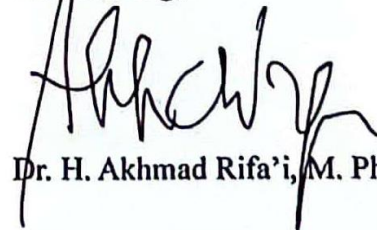 Dr. H. Akhmad Rifa'i, M. Ph